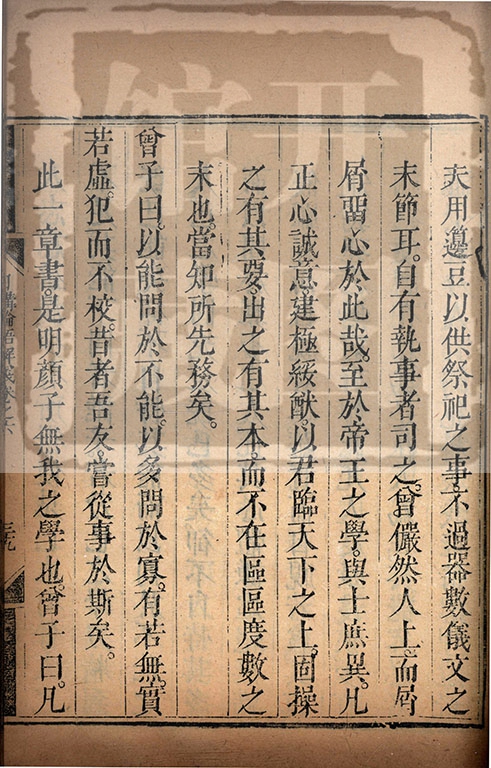 夫用籩豆以供祭祀之事。不過器數儀文之
末節耳。自有執事者司之。曾儼然人上。而屑
屑留心於此哉。至於帝王之學。與士庶異。凡
正心誠意。建極綏猷。以君臨天下之上。固操
之有其要。出之有其本。而不在區區度數之
末也。當知所先務矣。
曾子曰。以能問於不能。以多問於寡。有若無。實
若虛。犯而不校。昔者吾友。嘗從事於斯矣。
此一章書。是明顏子無我之學也。曾子曰。凡